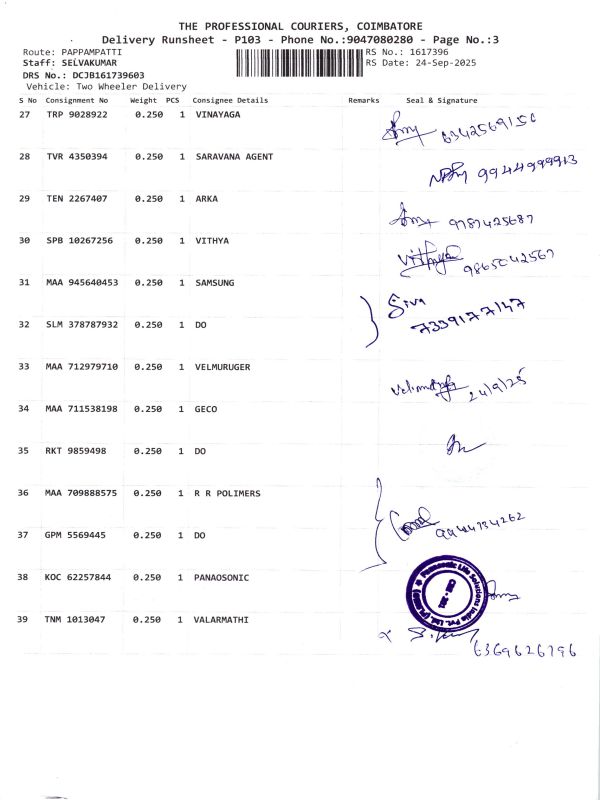 THE PROFESSIONAL COURIERS, COIMBATORE
Delivery Runsheet - P103 - Phone No.:9047080280 - Page No.:3
Route: PAPPAMPATTI RS No.: 1617396
Staff: SELVAKUMAR RS Date: 24-Sep-2025
DRS No.: DCJB161739603
Vehicle: Two Wheeler Delivery
S No Consignment No Weight PCS Consignee Details Remarks Seal & Signature
27 TRP 9028922 0.250 1 VINAYAGA
6342569150
28 TVR 4350394 0.250 1 SARAVANA AGENT
9944999913
29 TEN 2267407 0.250 1 ARKA
9787425687
30 SPB 10267256 0.250 1 VITHYA Vithya
9865042567
31 MAA 945640453 0.250 1 SAMSUNG Siva
7339177147
32 SLM 378787932 0.250 1 DO
33 MAA 712979710 0.250 1 VELMURUGER
24/9/25
34 MAA 711538198 0.250 1 GECO
35 RKT 9859498 0.250 1 DO
36 MAA 709888575 0.250 1 R R POLIMERS
9944734262
37 GPM 5569445 0.250 1 DO
38 KOC 62257844 0.250 1 PANAOSONIC
Panasonic Life Solutions India Pvt. Ltd.
39 TNM 1013047 0.250 1 VALARMATHI
6369626796